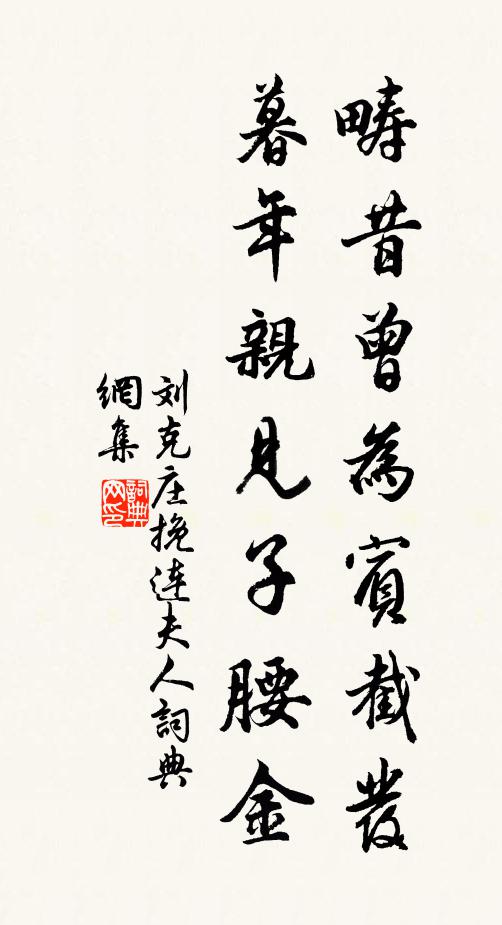 疇昔曾為賓截發
暮年親見子腰金
刘克庄挽連夫人詞典
網集
詞典
网印